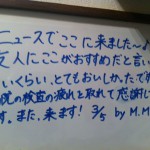 ニュースでここに来ました〜♪
友人にここがおすすめだと言い
いくらい、とてもおいしかったです
院の検査の疲れを取れて感謝し
す。また、来ます! 3/5 by M.M